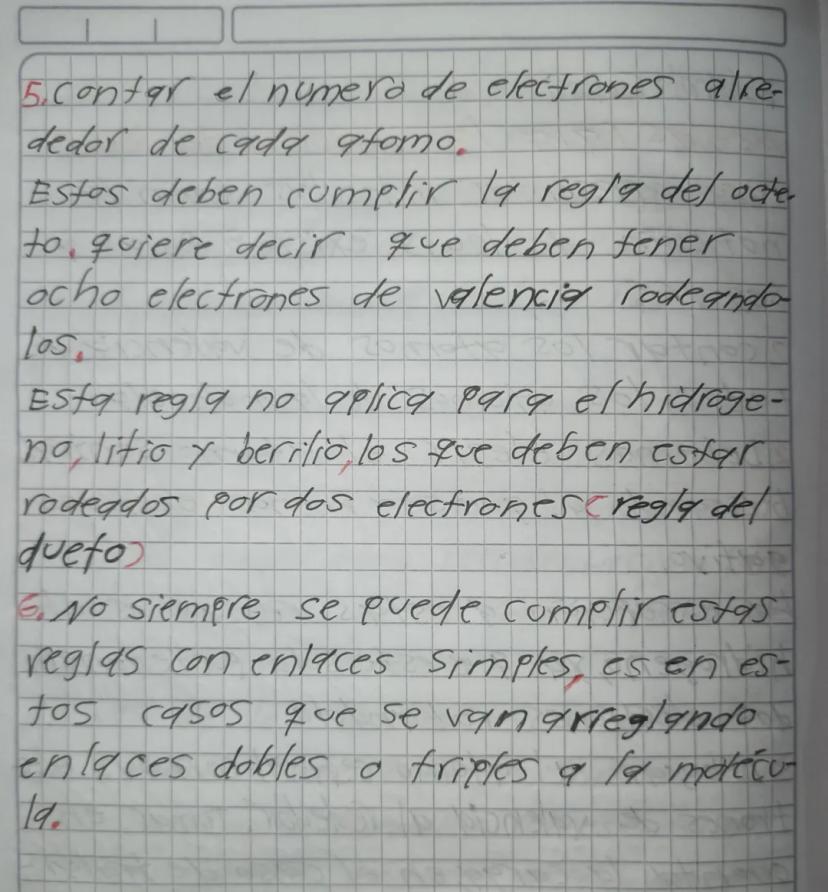 5. contar el numero de electrones alre-
dedor de cada atomo.
Estos deben cumplir la regla del octe-
to. quiere decir que deben tener
ocho electrones de valencia rodeando
los.
Esta regla no aplica para el hidroge-
no, litio y berilio, los que deben estar
rodeados por dos electrones (regla del
dueto)
6. No siempre se puede complir estas
reglas con enlaces simples, es en es-
tos casos que se van arreglando
enlaces dobles o triples a la molécu-
la.